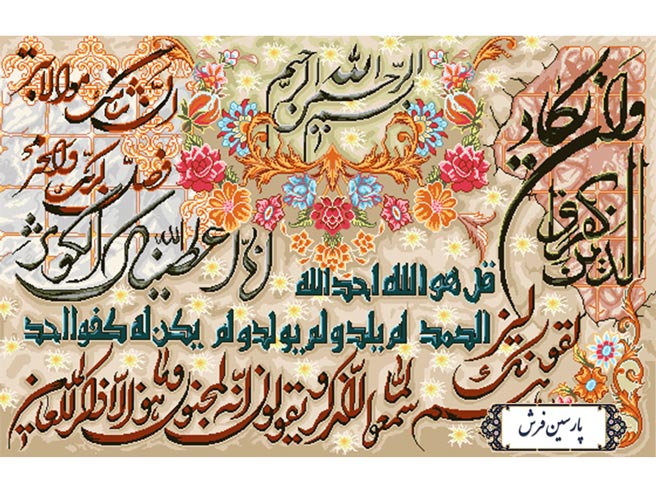 بسم الله الرحمن الرحيم
وان يكاد
الذين كفروا
ليزلقونك
بابصارهم
لما سمعوا الذكر ويقولون انه لمجنون وما هو الا ذكر للعالمين
انا اعطيناك الكوثر
فصل لربك وانحر
ان شانئك هو الابتر
قل هو الله احد الله
الصمد لم يلد و لم يولد و لم يكن له كفوا احد
پارسین فرش